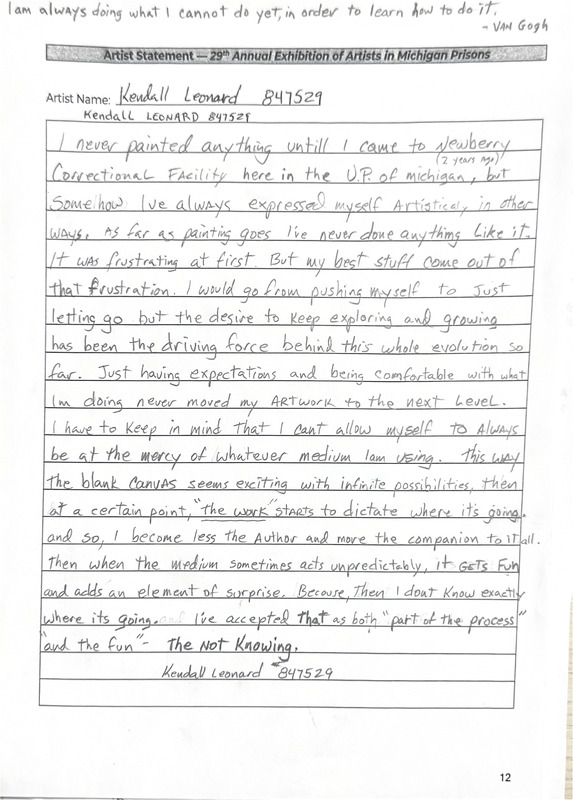 I am always doing what I cannot do yet, in order to learn how to do it.
- VAN Gogh
Artist Statement — 29th Annual Exhibition of Artists in Michigan Prisons
Artist Name: Kendall Leonard 847529
Kendall LEONARD 847529
I never painted anything untill I came to Newberry
(2 years ago)
Correctional Facility here in the U.P. of michigan, but
Somehow I've always expressed myself Artistical, in other
ways. As far as painting goes I've never done anything Like it.
It was frustrating at first. But my best stuff come out of
that frustration. I would go from pushing myself to Just
letting go but the desire to keep exploring and growing
has been the driving force behind this whole evolution so
far. Just having expectations and being comfortable with what
Im doing never moved my ARTWORK to the next Level.
I have to Keep in mind that I cant allow myself to Always
be at the mercy of whatever medium I am using. This way
the blank canvas seems exciting with infinite possibilities, then
at a certain point, "the work" STARTS to dictate where it's going.
and so, I become less the Author and more the companion to it all.
Then when the medium sometimes acts unpredictably, it GETS Fun
and adds an element of surprise. Because, Then I dont Know exactly
where its going. I've accepted That as both "part of the process"
"and the fun" - The Not Knowing.
Kendall Leonard 847529
12